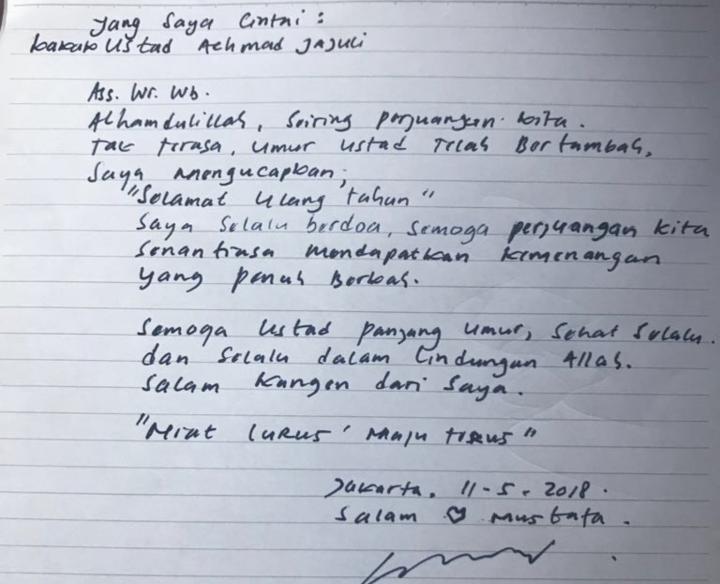 Yang Saya Cintai :
kakak Ustad Achmad Jajuli
Ass. Wr. Wb.
Alhamdulillah, Seiring perjuangan kita.
Tak terasa, umur ustad Telah Bertambah,
Saya mengucapkan;
"Selamat Ulang tahun"
Saya Selalu berdoa, Semoga perjuangan kita
Senantiasa mendapatkan kemenangan
yang penuh Berkah.
Semoga Ustad panjang umur, Sehat Selalu.
dan Selalu dalam Lindungan Allah.
Salam kangen dari Saya.
"Niat Lurus' Maju terus"
Jakarta, 11-5-2018.
Salam ♡ Mustafa.